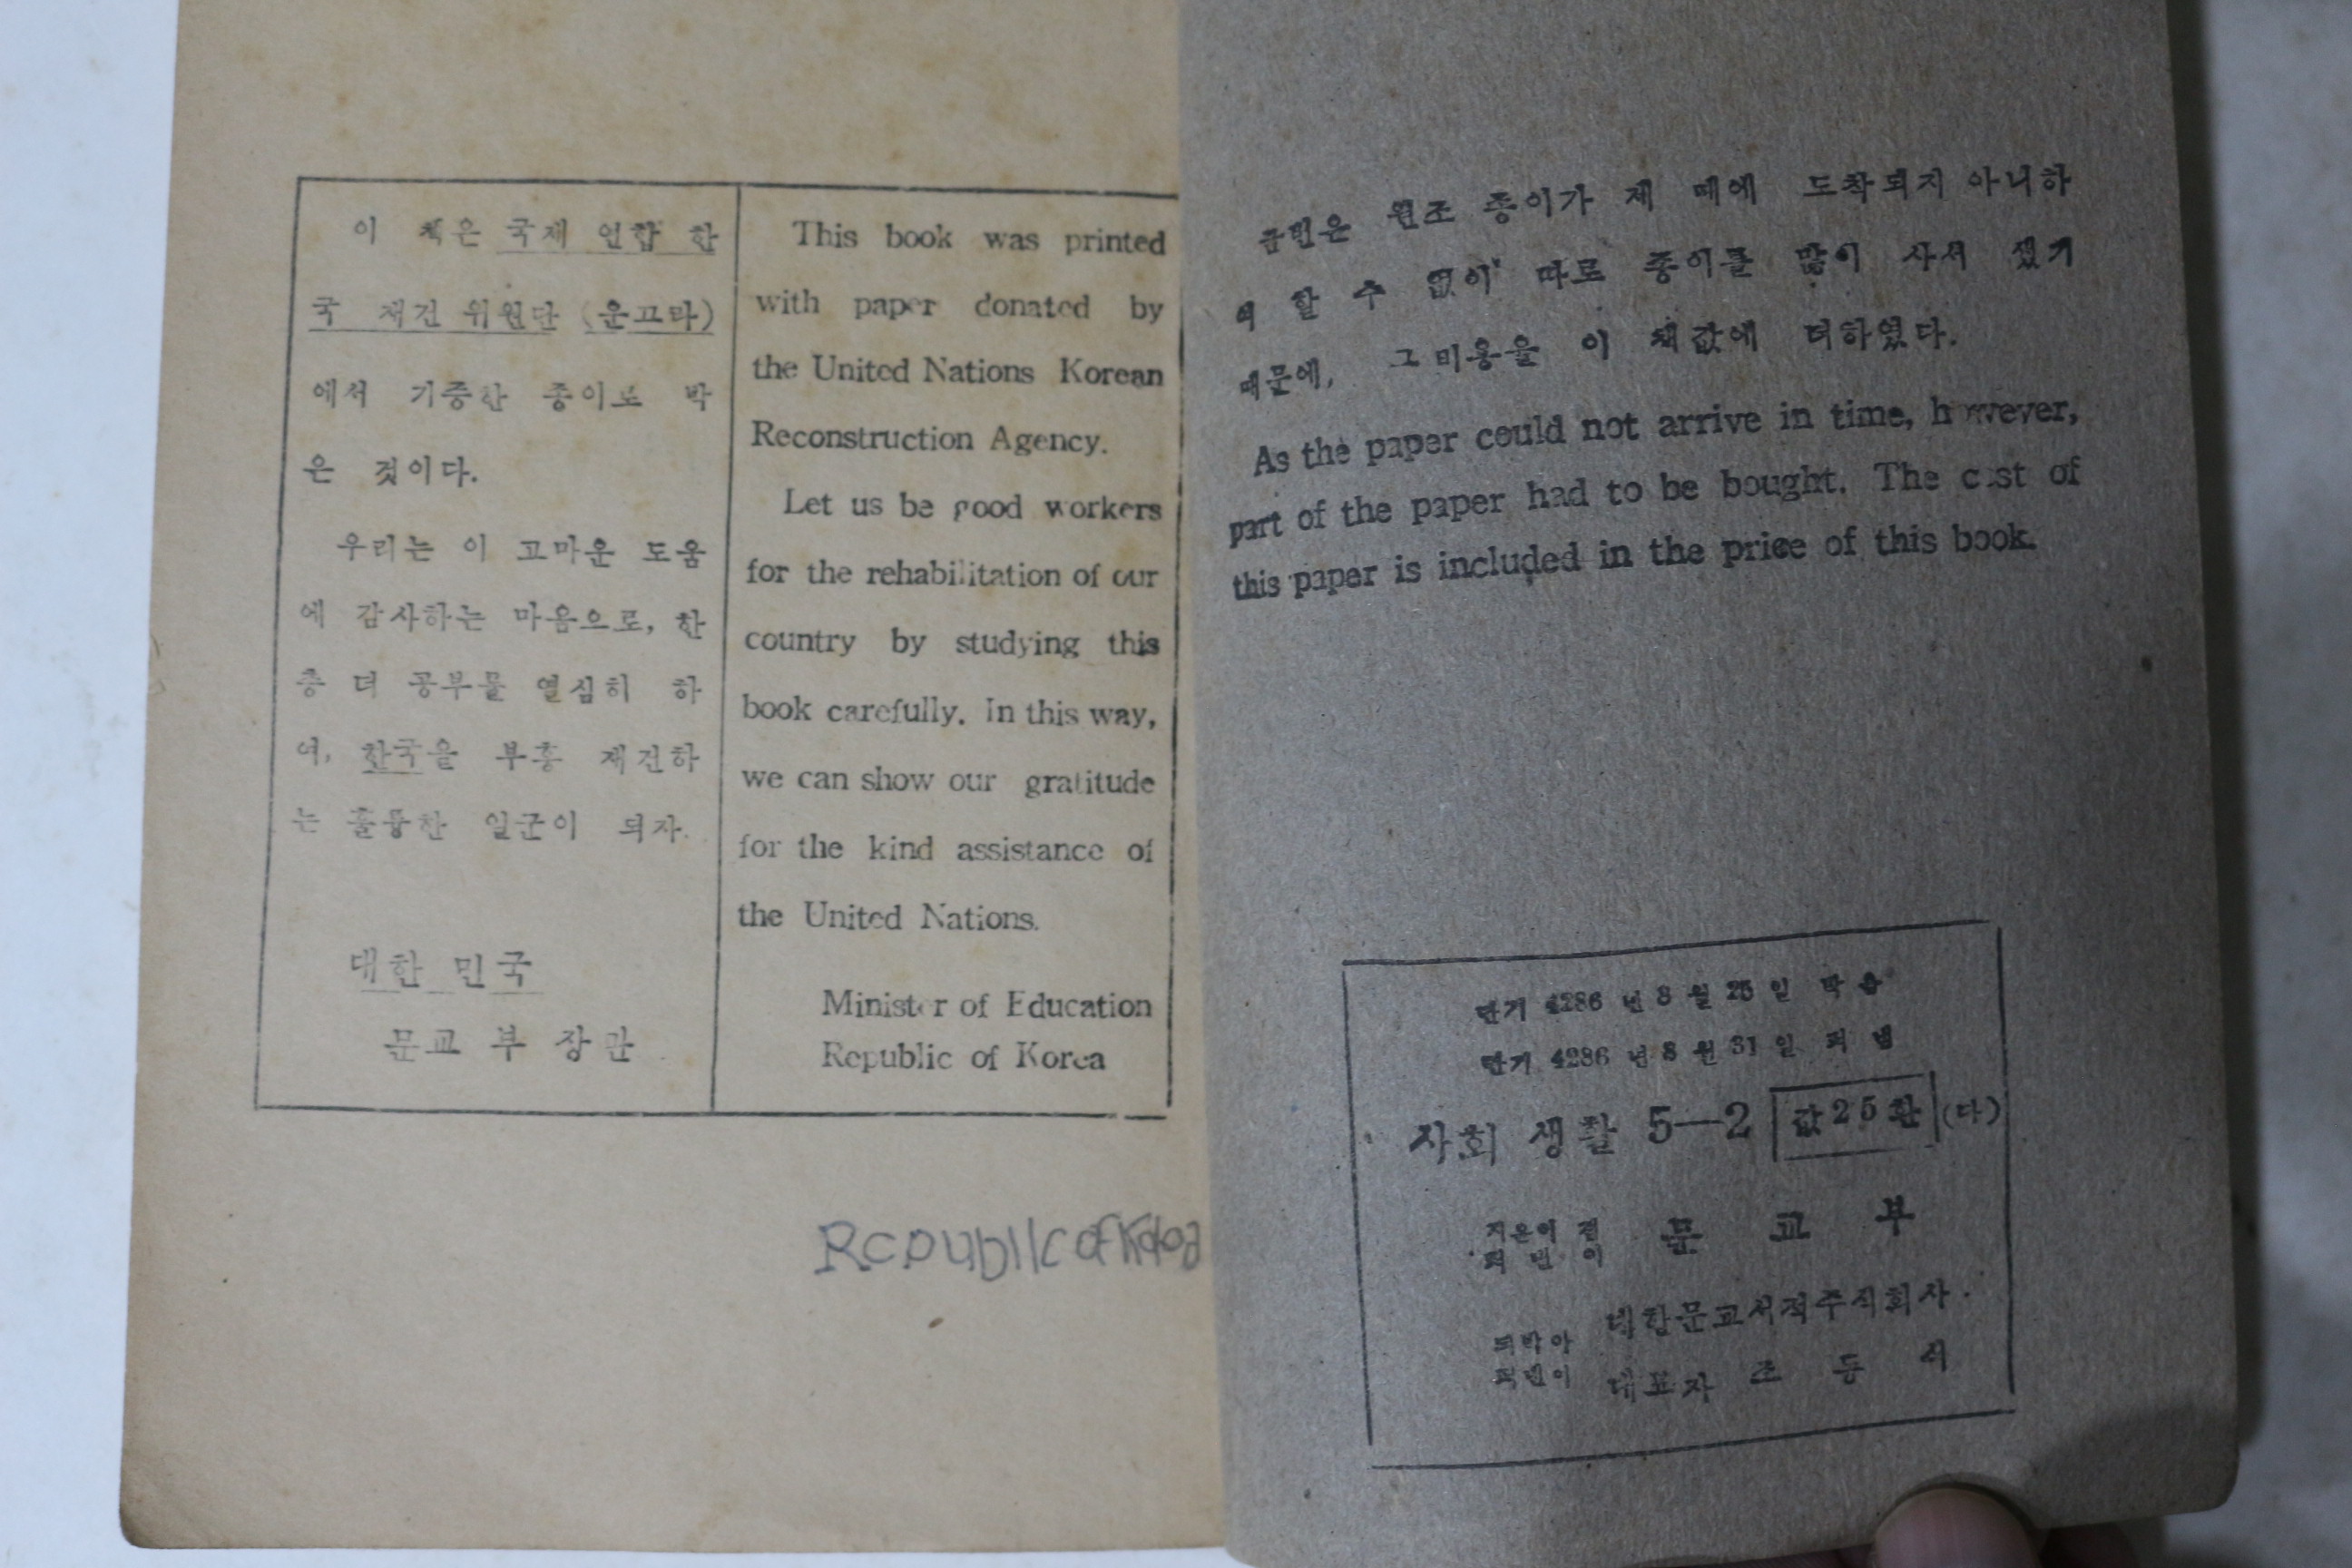 이 책은 국제 연합 한
국 재건 위원단 (운끄라)
에서 기증한 종이로 박
은 것이다.
우리는 이 고마운 도움
에 감사하는 마음으로, 한
층 더 공부를 열심히 하
여, 한국을 부흥 재건하
는 훌륭한 일군이 되자.
대한 민국
문교 부 장관
This book was printed
with paper donated by
the United Nations Korean
Reconstruction Agency.
Let us be good workers
for the rehabilitation of our
country by studying this
book carefully. In this way,
we can show our gratitude
for the kind assistance of
the United Nations.
Minister of Education
Republic of Korea
Republic of Korea
금번은 원조 종이가 제 때에 도착되지 아니하
여 할 수 없이 따로 종이를 많이 사서 썼기
때문에, 그 비용을 이 책값에 더하였다.
As the paper could not arrive in time, however,
part of the paper had to be bought. The cost of
this paper is included in the price of this book.
단기 4286 년 8 월 25 일 박음
단기 4286 년 8 월 31 일 펴냄
사회 생활 5—2 값 25 환 (다)
지은이 겸
펴 낸 이 문 교 부
되박아
펴낸이 대한문교서적주식회사
대표자 조 동 식